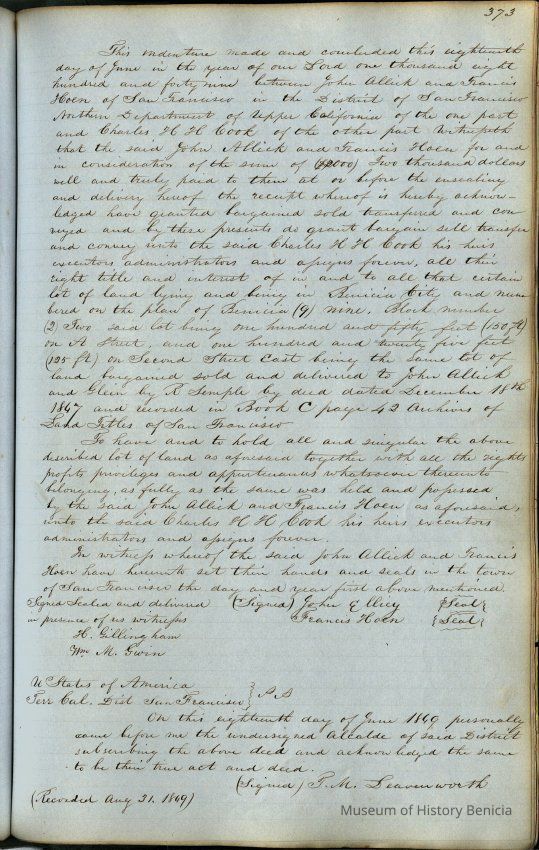 373
This indenture made and concluded this eighteenth
day of June in the year of our Lord one thousand eight
hundred and forty nine between John Allick and Francis
Hoen of San Francisco in the District of San Francisco
Northern Department of Upper California of the one part
and Charles H H Cook of the other part Witnesseth
that the said John Allick and Francis Hoen for and
in consideration of the sum of Two thousand dollars
well and truly paid to them at or before the ensealing
and delivery hereof the receipt whereof is hereby acknow-
ledged have granted bargained sold transfered and con
veyed and by these presents do grant bargain sell transfer
and convey unto the said Charles H H Cook his heirs
executors administrators and assigns forever, all their
right title and interest of in and to all that certain
lot of land lying and being in Benicia City and num
bered on the plan of Benicia (9) nine, Block number
(2) Two, said lot being one hundred and fifty feet (150 ft)
on A Street, and one hundred and twenty five feet
(125 ft) on Second Street East being the same lot of
land bargained sold and delivered to John Allick
and Glein by R Semple by deed dated December 18th
1847 and recorded in Book C page 42 Archives of
Land Titles of San Francisco
To have and to hold all and singular the above
described lot of land as aforesaid together with all the rights
profits privileges and appurtenances whatsoever thereunto
belonging, as fully as the same was held and possessed
by the said John Allick and Francis Hoen as aforesaid,
unto the said Charles H H Cook his heirs executors
administrators and assigns forever.
In witness whereof the said John Allick and Francis
Hoen have hereunto set their hands and seals in the town
of San Francisco the day and year first above mentioned.
Signed Sealed and delivered (Signed) John Ellicy {Seal}
in presence of us witness Francis Hoen {Seal}
H. Gillingham
Wm M. Gwin
U States of America
Terr Cal. Dist San Francisco } S S
On this eighteenth day of June 1849 personally
came before me the undersigned Alcalde of said District
subscribing the above deed and acknowledged the same
to be their true act and deed.
(Signed) T. M. Leavenworth
(Recorded Aug 31. 1849)
Museum of History Benicia